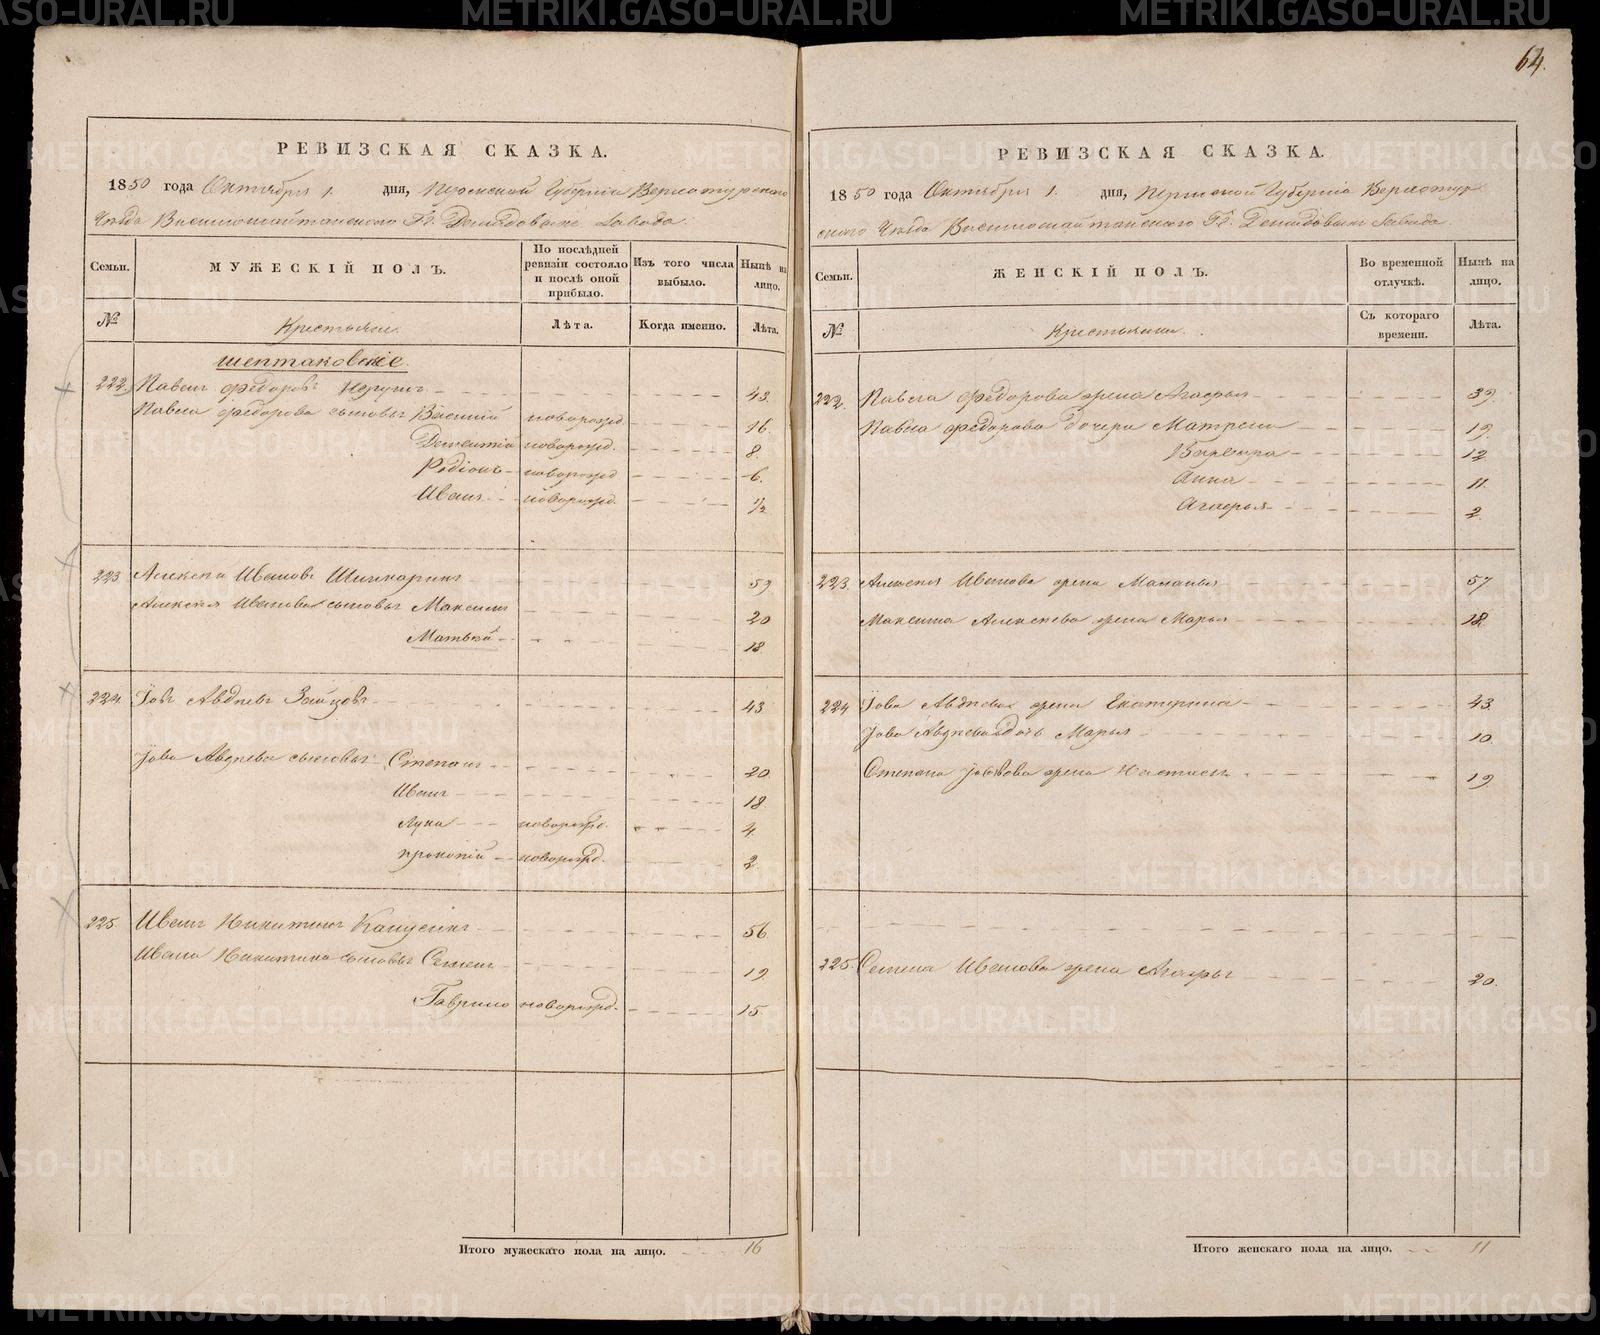 64.
РЕВИЗСКАЯ СКАЗКА.
1850 года Октября 1. дня, Пермской Губерніи Верхотурскаго
Уѣзда Висимошайтанскаго Гг. Демидовыхъ Завода.
Семьи.
МУЖЕСКІЙ ПОЛЪ.
По послѣдней ревизіи состояло и послѣ оной прибыло.
Изъ того числа выбыло.
Нынѣ на лицо.
№
Крестьяне.
Лѣта.
Когда именно.
Лѣта.
шептаковскіе.
222. Павелъ Федоровъ 43.
Павла Федорова сыновья Василій новорожд. 16.
Дементій новорожд. 8.
Родіонъ новорожд 6.
Иванъ новорожд. 1/2
223 Алексѣй Ивановъ 59
Алексѣя Иванова сыновья Максимъ 20
Матвѣй 18
224. Іовъ Авдѣевъ Зайцовъ 43
Іова Авдѣева сыновья Степанъ 20
Иванъ 18
Лука новорожд. 4.
Прокопій новорожд. 2
225 Иванъ Никитинъ 56
Ивана Никитина сыновья Семенъ 19
Гаврило новорожд. 15
Итого мужескаго пола на лицо. 16
РЕВИЗСКАЯ СКАЗКА.
1850 года Октября 1. дня, Пермской Губерніи Верхотур
скаго Уѣзда Висимошайтанскаго Гг. Демидовыхъ Завода.
Семьи.
ЖЕНСКІЙ ПОЛЪ.
Во временной отлучкѣ.
Нынѣ на лицо.
№
Крестьянки.
Съ котораго времени.
Лѣта.
222. Павла Федорова жена Агафья 39.
Павла Федорова дочери Матрена 19.
Варвара 12
Анна 11.
Агафья 2.
223. Алексѣя Иванова жена Маланья 57
Максима Алексѣева жена Марья 18
224 Іова Авдѣева жена Екатерина 43
Іова Авдѣева дочь Марья 10
Степана Іовова жена Настасья 19
225. Семена Иванова жена Агафья 20.
Итого женскаго пола на лицо. 11
METRIKI.GASO-URAL.RU